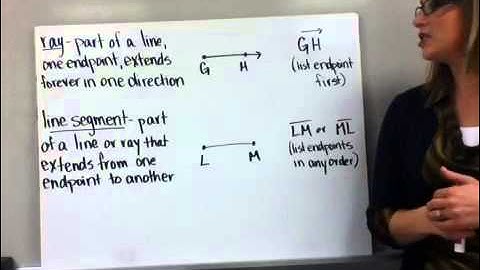 ray - part of a line,
one endpoint, extends
forever in one direction
G H
GH
(list endpoint
first)
line segment - part
of a line or ray that
extends from one
endpoint to another
L M
LM or ML
(list endpoints
in any order)